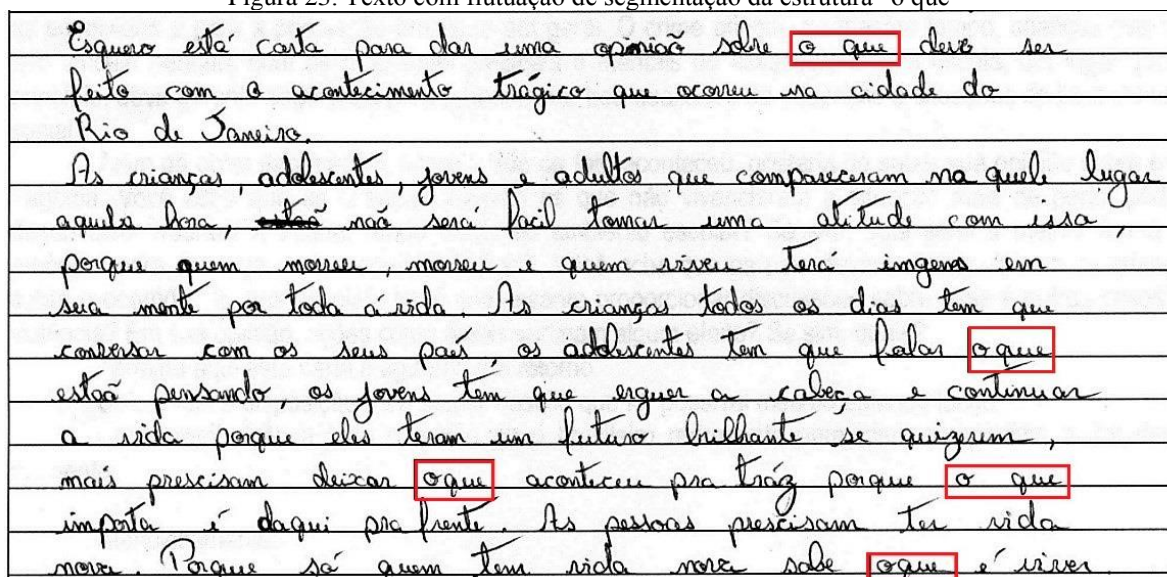 Figura 23: Texto com flutuação de segmentação da estrutura "o que"
Esquero está carta para dar uma opiniaõ sobre o que deve ser
feito com o acontecimento trágico que ocorreu na cidade do
Rio de Janeiro.
As crianças, adolescentes, jovens e adultos que compareceram na quele lugar
aquela hora, naõ sera facil tomar uma atitude com issa,
porque quem morreu, morreu e quem viveu terá imgens em
sua mente por toda a vida. As crianças todos os dias tem que
conversar com os seus pais, os adolescentes tem que falar oque
estaõ pensando os jovens tem que erguer a cabeça e continuar
a vida porque eles teram um futuro brilhante se quizerem,
mais prescisam deixar oque aconteceu pra tráz porque o que
importa é daqui pra frente. As pessoas prescisam ter vida
nova. Porque só quem tem vida nova sabe oque é viver.